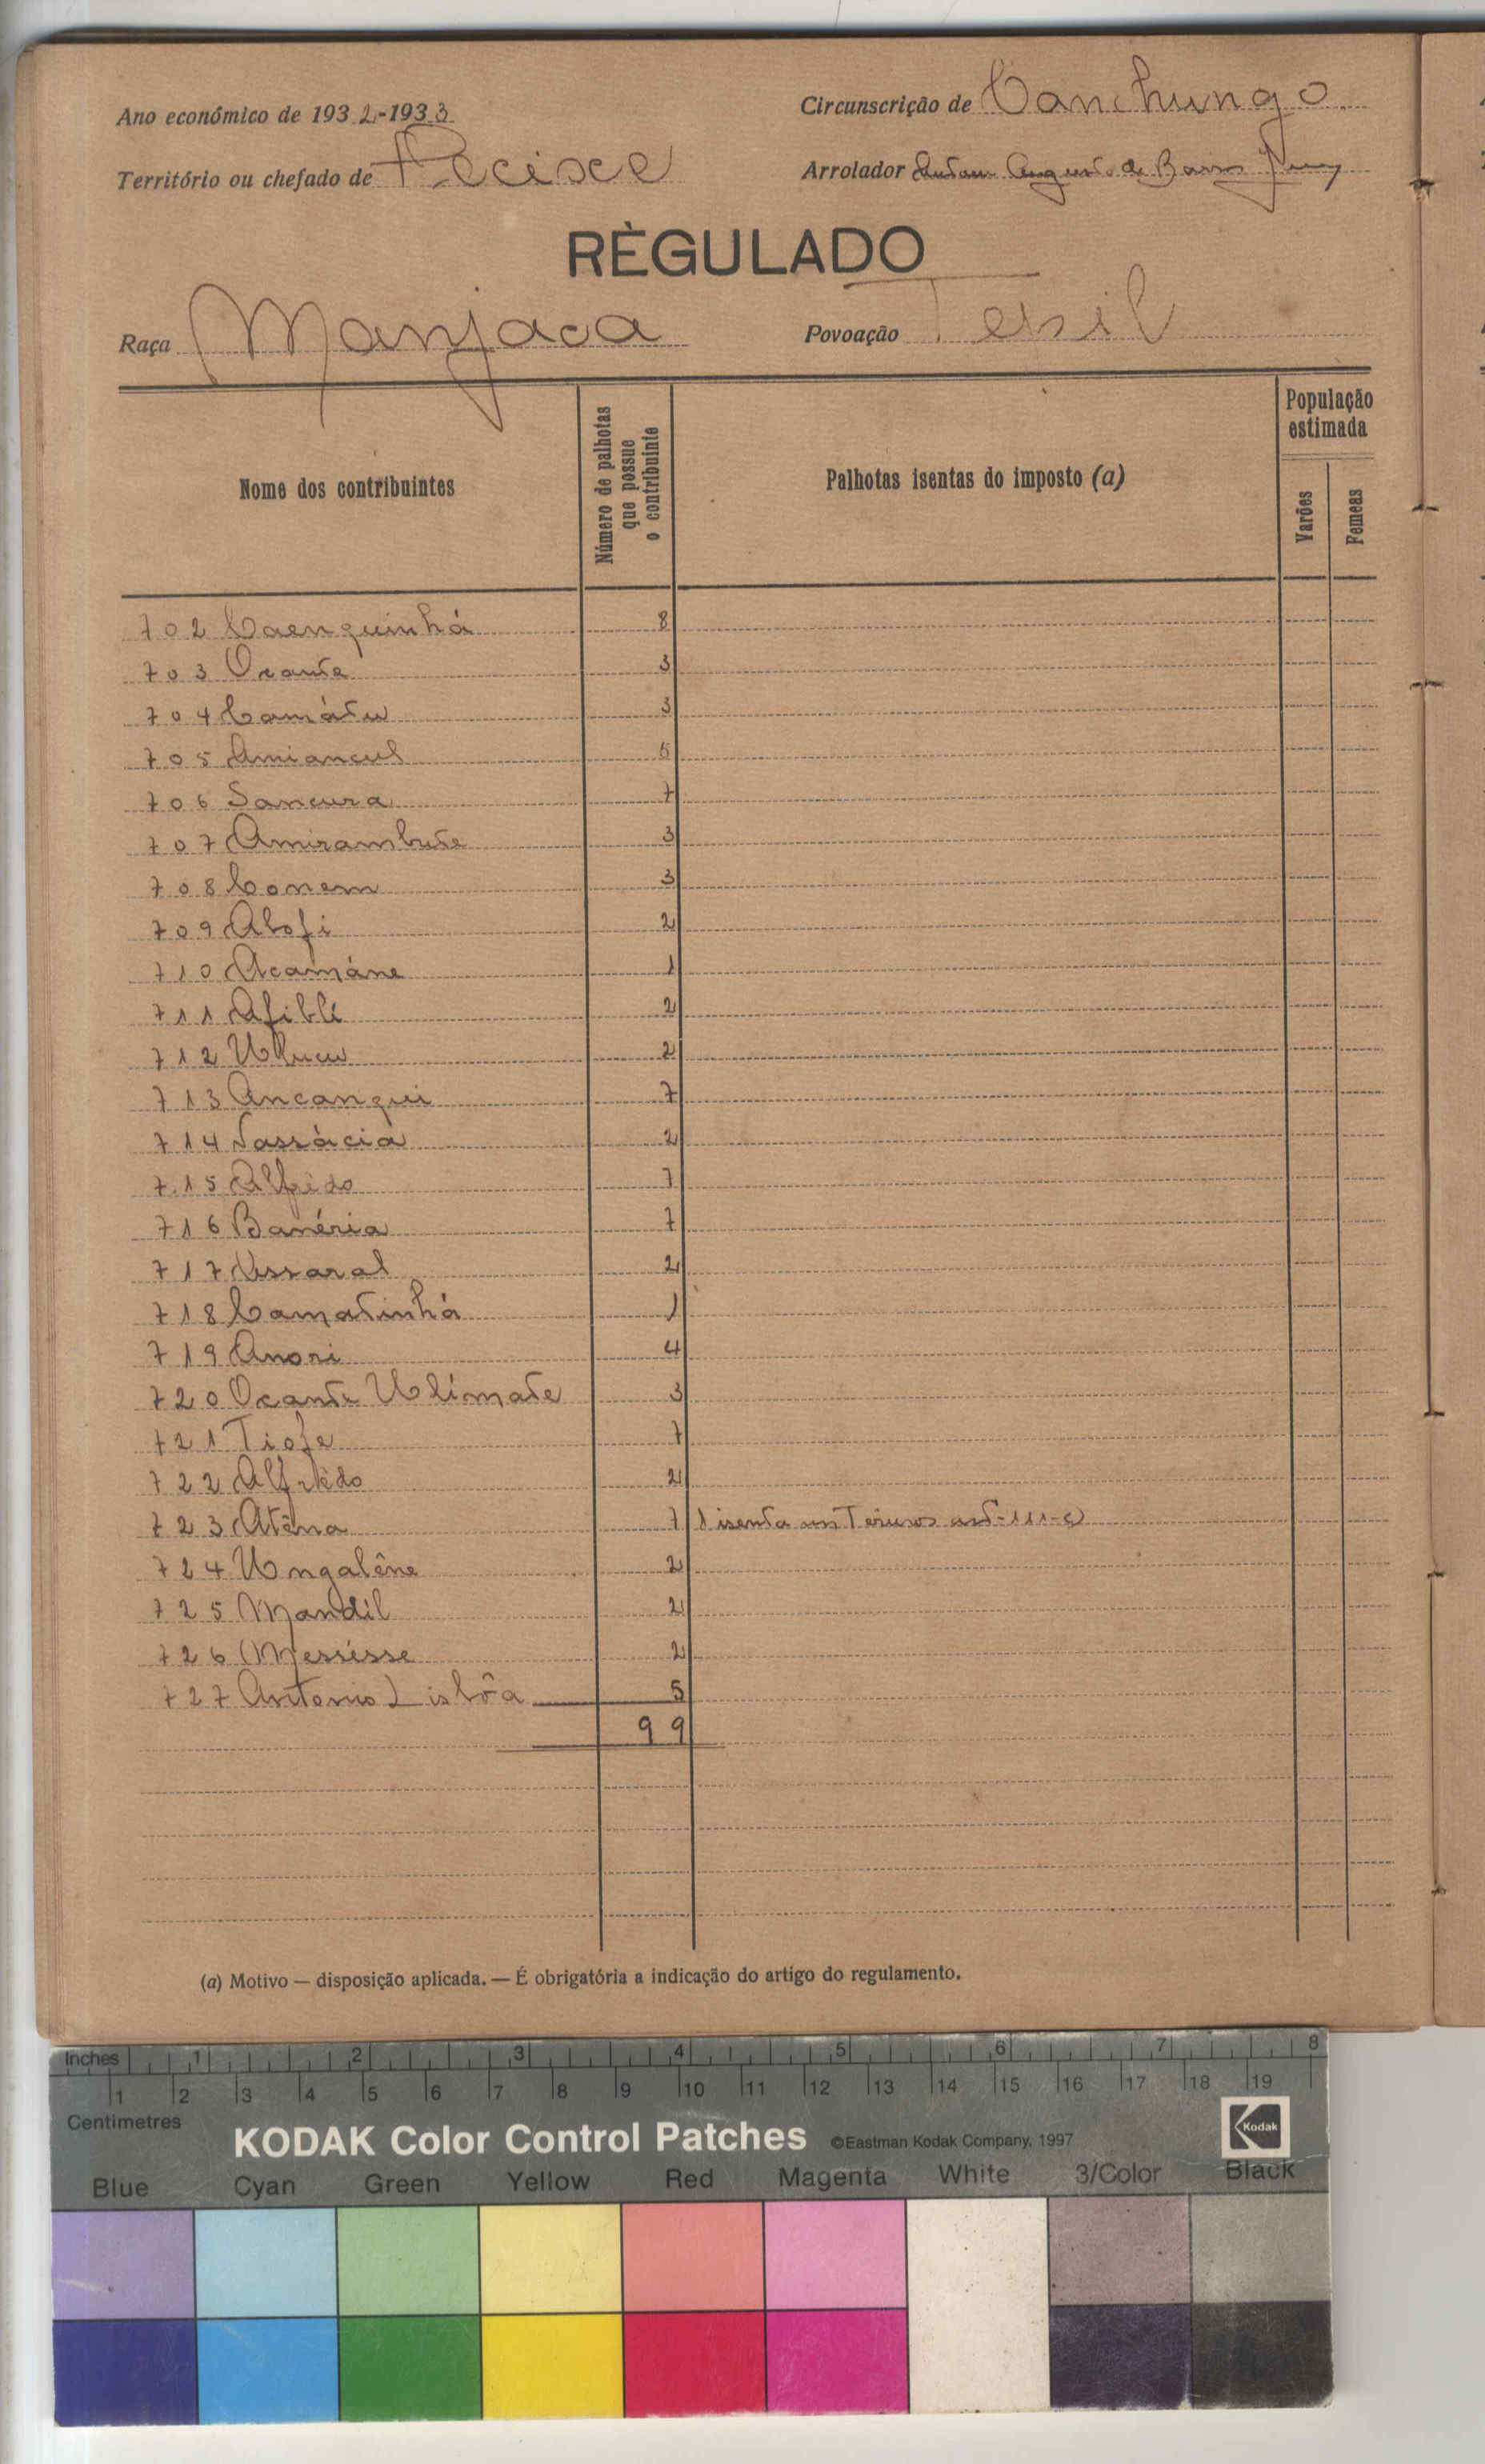 Ano económico de 1932-1933
Circunscrição de Canchungo
Território ou chefado de Pecisce
Arrolador Augusto de Barros
RÈGULADO
Raça Manjaca
Povoação
Nome dos contribuintes
Número de palhotas que possue o contribuinte
Palhotas isentas do imposto (a)
População estimada
Varões
Femeas
702 Caenguinhá 8
703 Ocante 3
704 Camátu 3
705 Amiancul 5
706 Sancura 7
707 Amirambute 3
708 Conem 3
709 Abofi 2
710 Acamáne 1
711 Afibli 2
712 2
713 Ancangui 7
714 2
715 7
716 Banéria 7
717 Ussaral 2
718 Camatinhá 1
719 Anori 4
720 Ocante Ulimate 3
721 Tiofe 7
722 Alfrêdo 2
723 Atêna 7 1 isenta nos Termos art-111-c)
724 Ungalêne 2
725 Mandil 2
726 Messisse 2
727 Antonio Lisbôa 5
99
(a) Motivo — disposição aplicada. — É obrigatória a indicação do artigo do regulamento.
Inches 1 2 3 4 5 6 7 8
1 2 3 4 5 6 7 8 9 10 11 12 13 14 15 16 17 18 19
Centimetres
KODAK Color Control Patches ©Eastman Kodak Company, 1997 Kodak
Blue Cyan Green Yellow Red Magenta White 3/Color Black